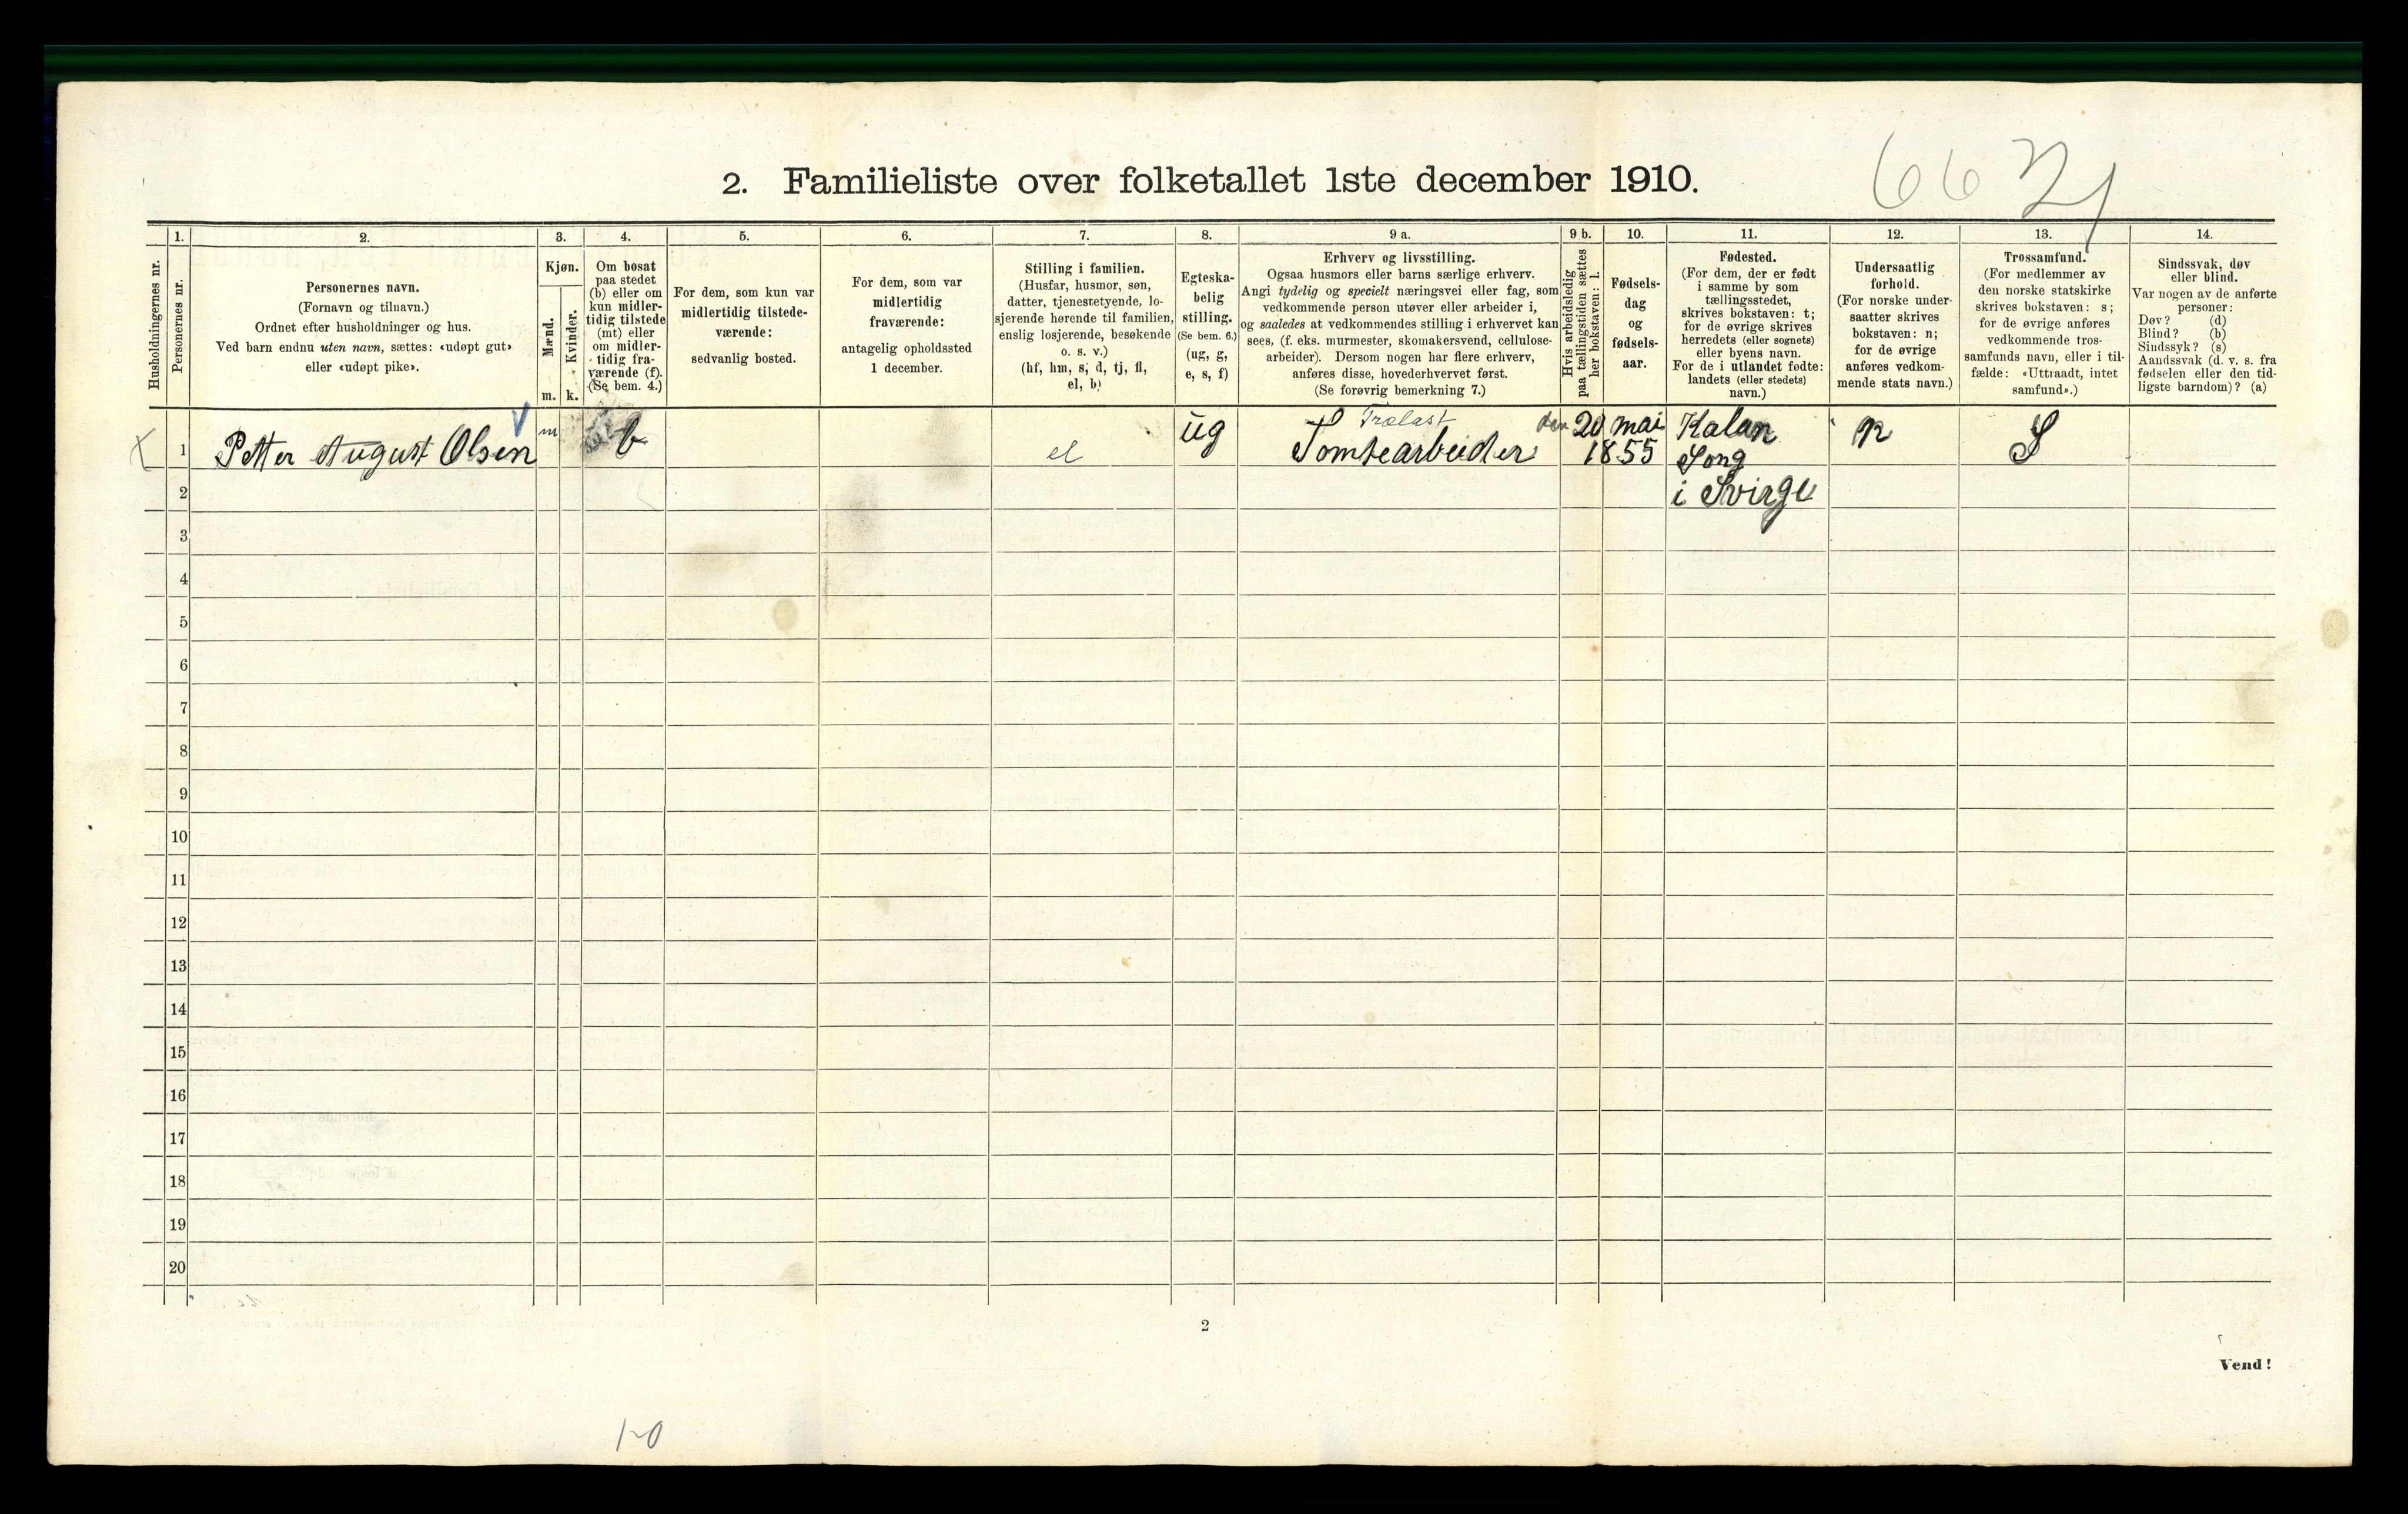 6621
2. Familieliste over folketallet 1ste december 1910.
Husholdningernes nr.
1.
Personernes nr.
2.
Personernes navn.
(Fornavn og tilnavn.)
Ordnet efter husholdninger og hus.
Ved barn endnu uten navn, sættes: «udøpt gut»
eller «udøpt pike».
3.
Kjøn.
Mænd.
Kvinder.
m.
k.
4.
Om bosat
paa stedet
(b) eller om
kun midler-
tidig tilstede
(mt) eller
om midler-
tidig fra-
værende (f).
(Se bem. 4.)
5.
For dem, som kun var
midlertidig tilstede-
værende:
sedvanlig bosted.
6.
For dem, som var
midlertidig
fraværende:
antagelig opholdssted
1 december.
7.
Stilling i familien.
(Husfar, husmor, søn,
datter, tjenestetyende, lo-
sjerende hørende til familien,
enslig losjerende, besøkende
o. s. v.)
(hf, hm, s, d, tj, fl,
el, b)
8.
Egteska-
belig
stilling.
(Se bem. 6.)
(ug, g,
e, s, f)
9 a.
Erhverv og livsstilling.
Ogsaa husmors eller barns særlige erhverv.
Angi tydelig og specielt næringsvei eller fag, som
vedkommende person utøver eller arbeider i,
og saaledes at vedkommendes stilling i erhvervet kan
sees, (f. eks. murmester, skomakersvend, cellulose-
arbeider). Dersom nogen har flere erhverv,
anføres disse, hovederhvervet først.
(Se forøvrig bemerkning 7.)
9 b.
Hvis arbeidsledig
paa tællingstiden sættes
her bokstaven: l.
10.
Fødsels-
dag
og
fødsels-
aar.
11.
Fødested.
(For dem, der er født
i samme by som
tællingsstedet,
skrives bokstaven: t;
for de øvrige skrives
herredets (eller sognets)
eller byens navn.
For de i utlandet fødte:
landets (eller stedets)
navn.)
12.
Undersaatlig
forhold.
(For norske under-
saatter skrives
bokstaven: n;
for de øvrige
anføres vedkom-
mende stats navn.)
13.
Trossamfund.
(For medlemmer av
den norske statskirke
skrives bokstaven: s;
for de øvrige anføres
vedkommende tros-
samfunds navn, eller i til-
fælde: «Uttraadt, intet
samfund».)
14.
Sindssvak, døv
eller blind.
Var nogen av de anførte
personer:
Døv? (d)
Blind? (b)
Sindssyk? (s)
Aandssvak (d. v. s. fra
fødselen eller den tid-
ligste barndom)? (a)
1 Petter August Olsen m b el ug Trælast Tomtearbeider den 20 mai 1855 Kalan Song n S
2 i Svirge
3
4
5
6
7
8
9
10
11
12
13
14
15
16
17
18
19
20
2
Vend!
1-0